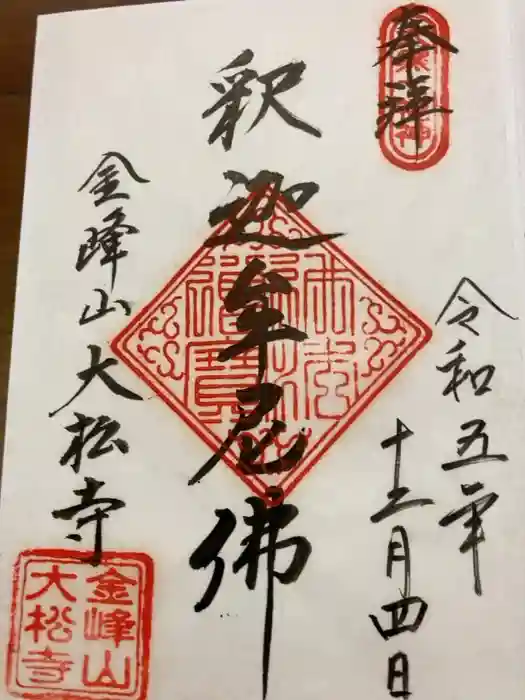 奉拝
令和五年
十二月四日
釈迦牟尼佛
佛法僧寶
金峰山大松寺
金峰山
大松寺